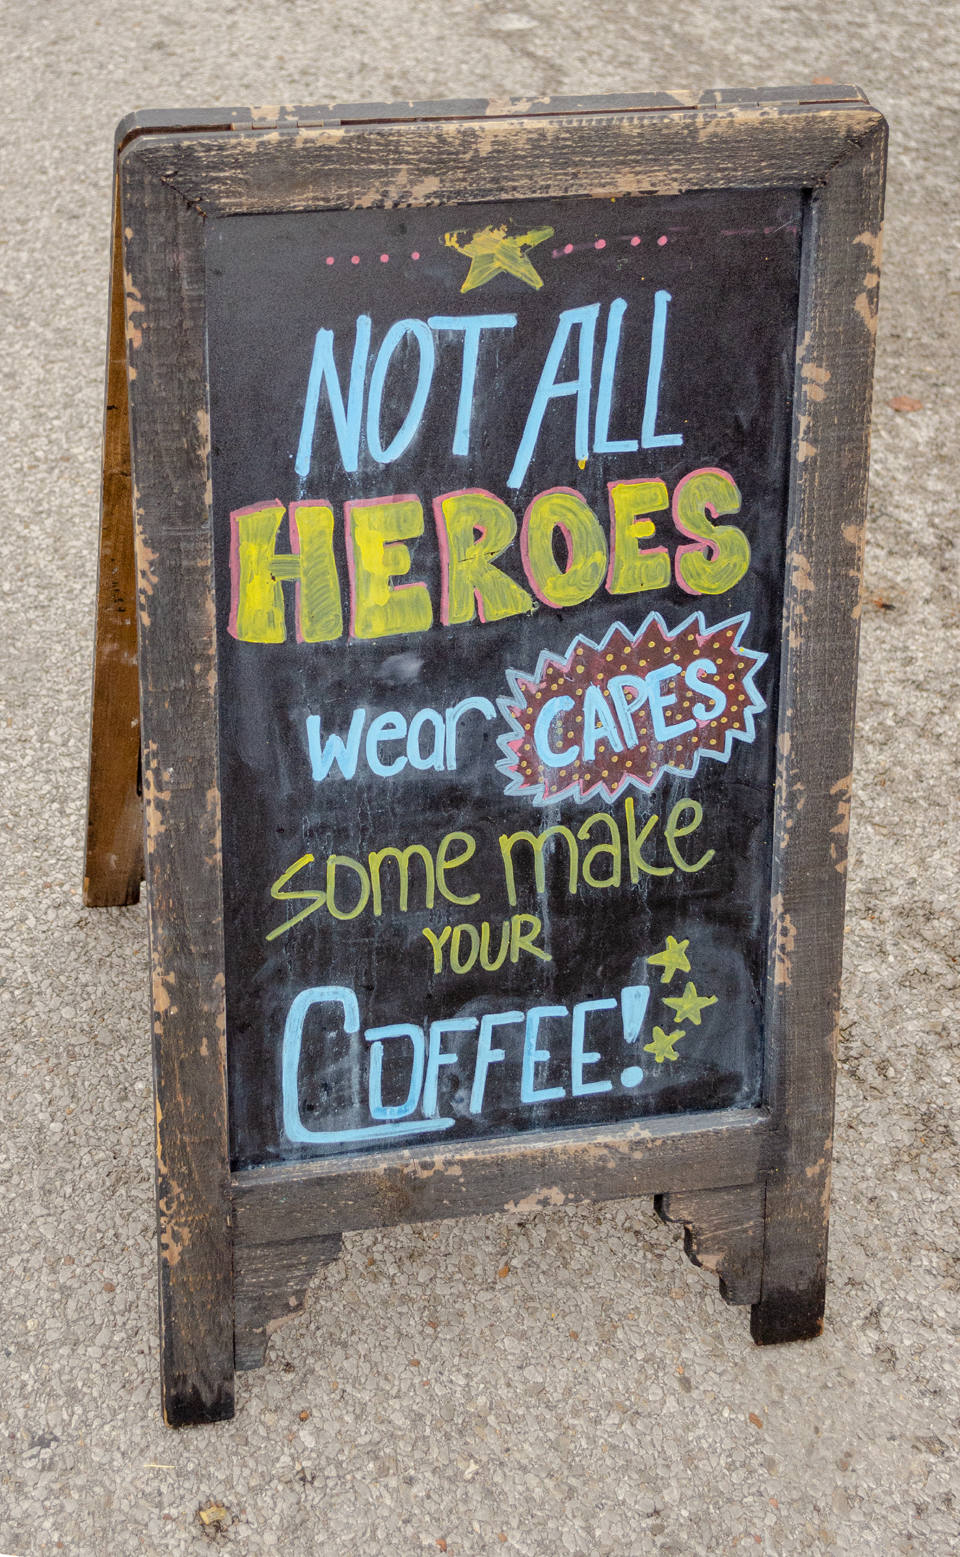 NOT ALL
HEROES
wear CAPES
some make
YOUR
COFFEE!